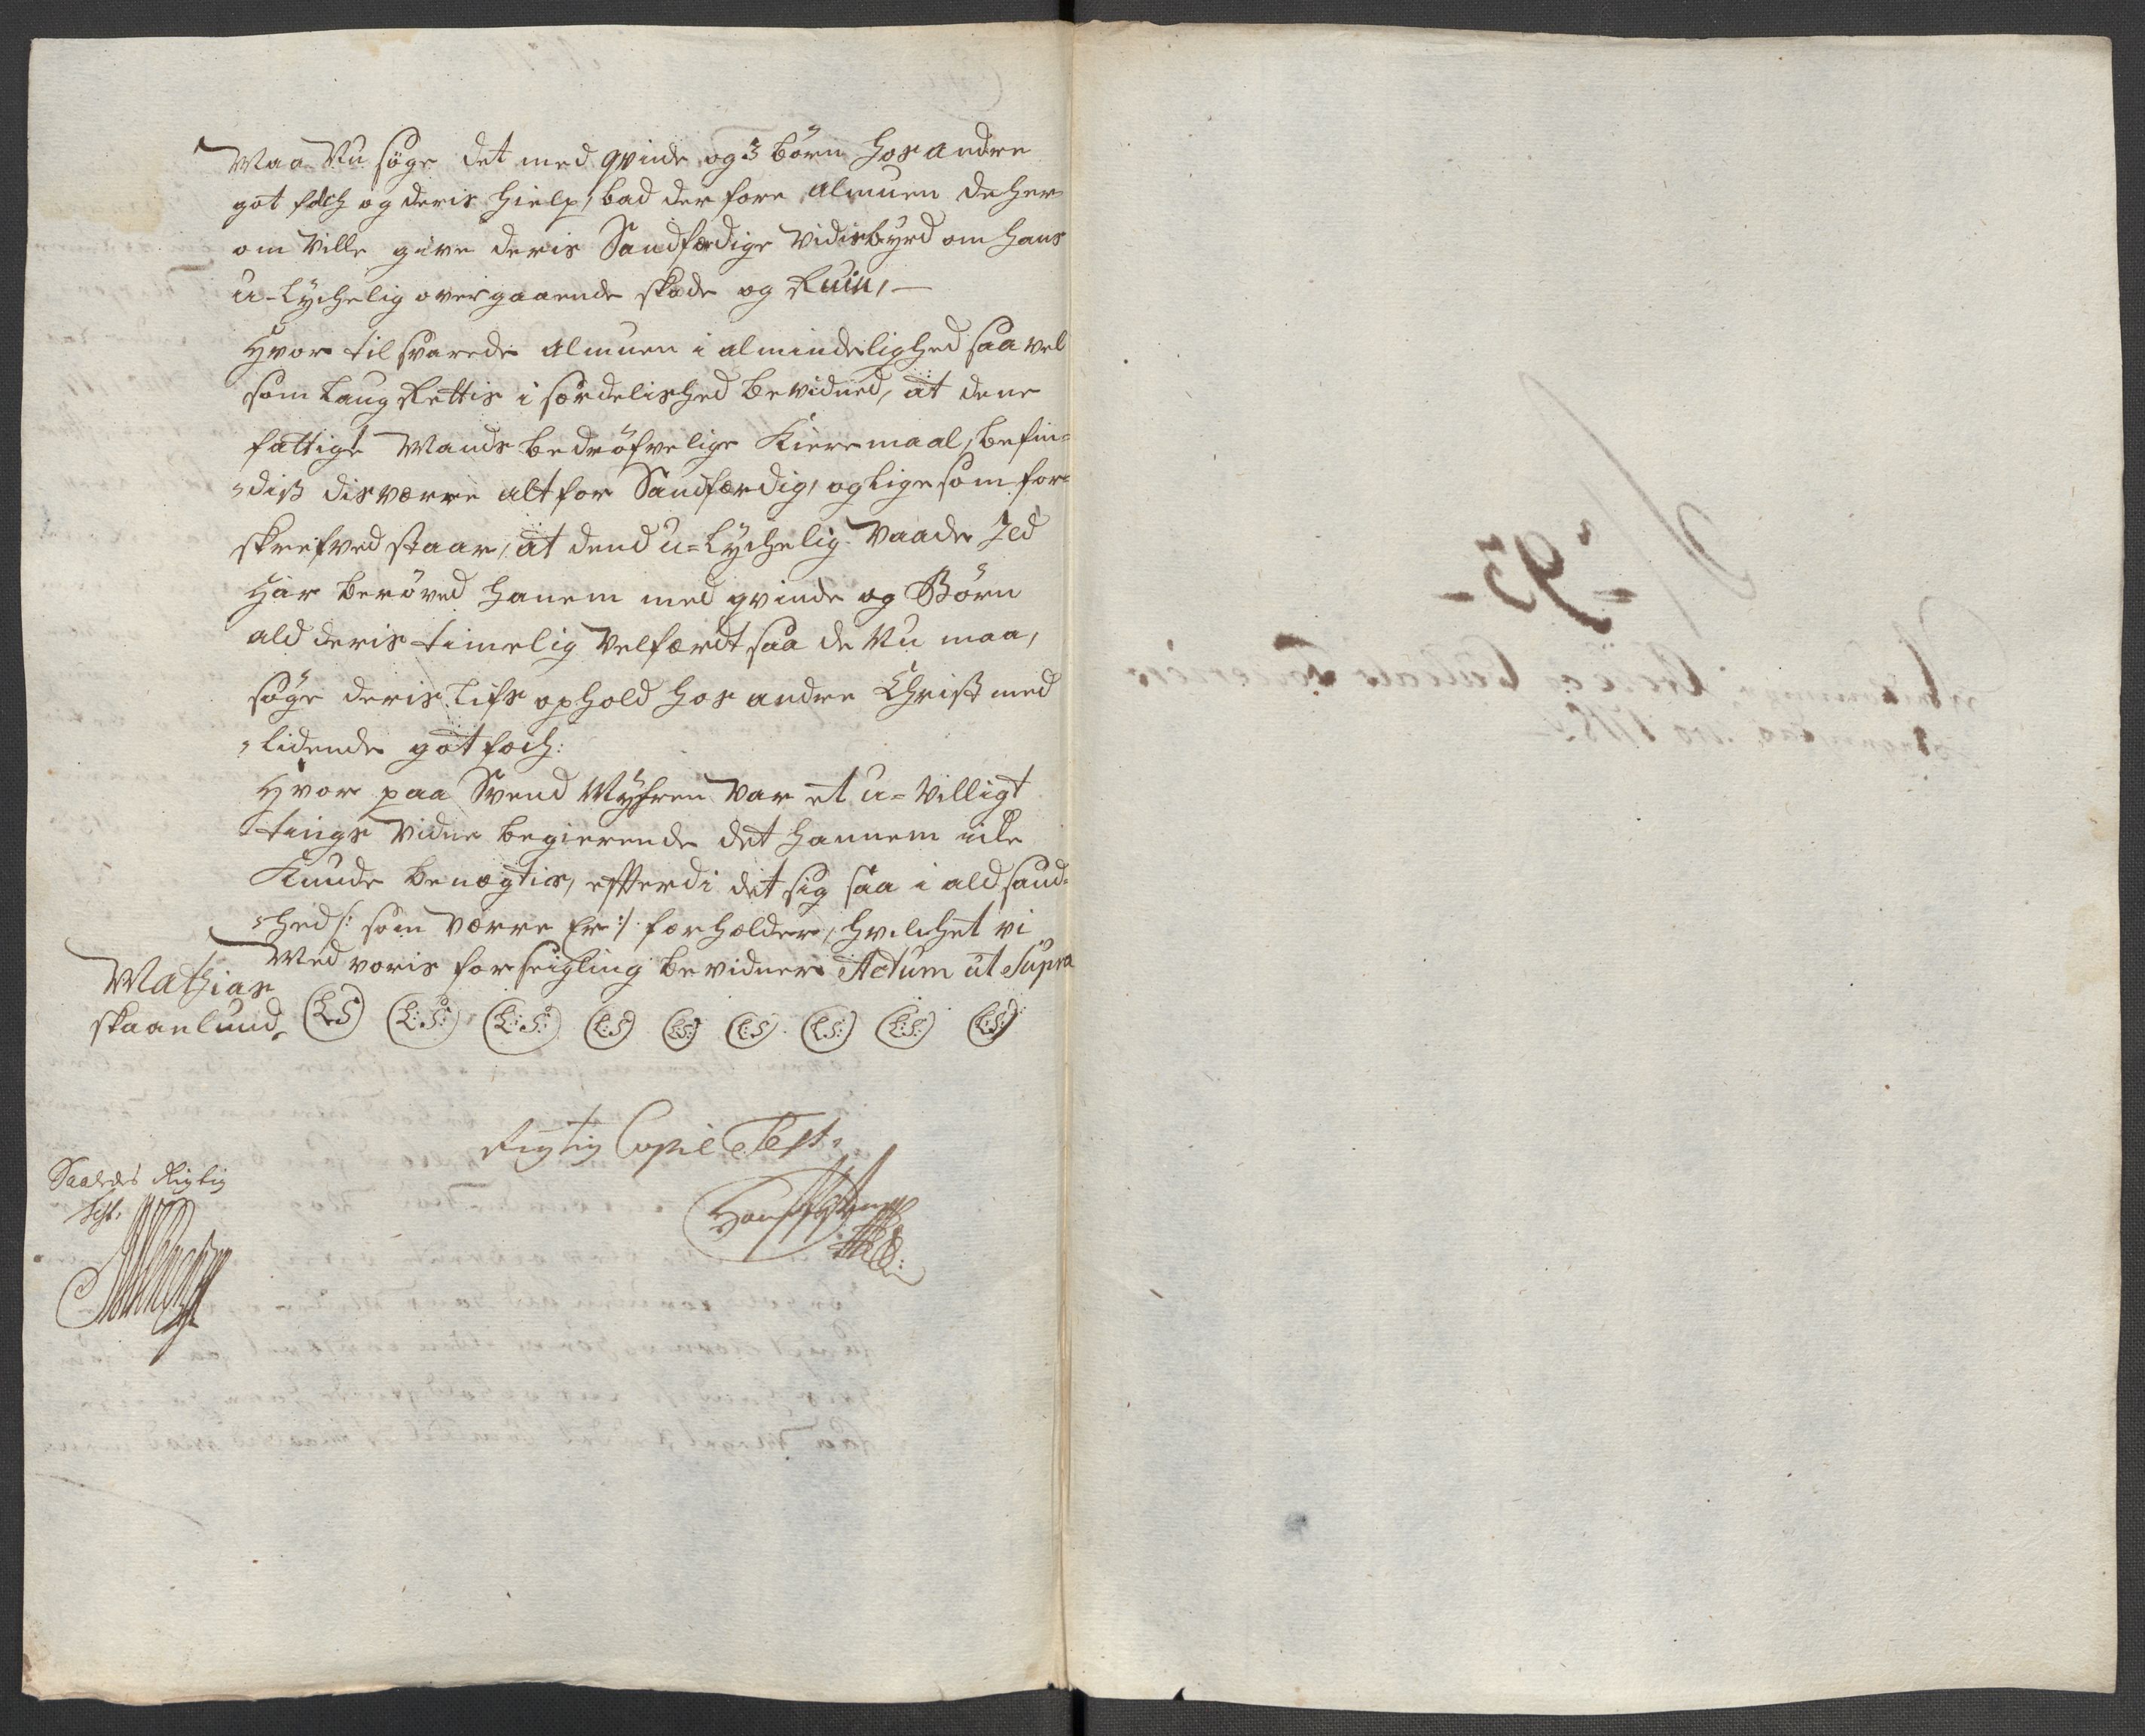 Maa Nu søge det med qvinde og 3 børn hos andre
got folch og deris hielp, bad der fore Almuen de her-
om Ville give deris Sandfærdige Vidisbyrd om hans
u-lychelig overgaaende skade og Ruin, —
Hvor til svarede Almuen i almindelighed saa vel
som Laug Rettis i særdelished bevidned, at dene
fattige Mands bedrøfvelige Kieremaal, befin-
-diß disværre alt for Sandfærdig, og ligesom for-
skrefved staar, at dend u-lychelig Vaade Jld
Har berøved hanem med qvinde og Børn
ald deris timelig Velfærdt saa de Nu maa,
søge deris Lifs ophold hos andre Christ med
-lidende got folch:
Hvor paa Svend Myhren Var et u-Villigt
tings Vidne begierende det hannem icke
Kunde benegtis, efterdi det sig saa i ald sand-
-hed /: som Værre Er :/ forholder, hvilchet vi
Med voris forseigling bevidner Actum ut Supra
Mathias
skaanlund (L:S) (L:S:) (L:S:) (L:S) (L:S:) (L:S) (L:S:) (L:S:) (L:S:)
Rigtig Copie Test.
Saaledes Rigtig
test.
No
- 95 -